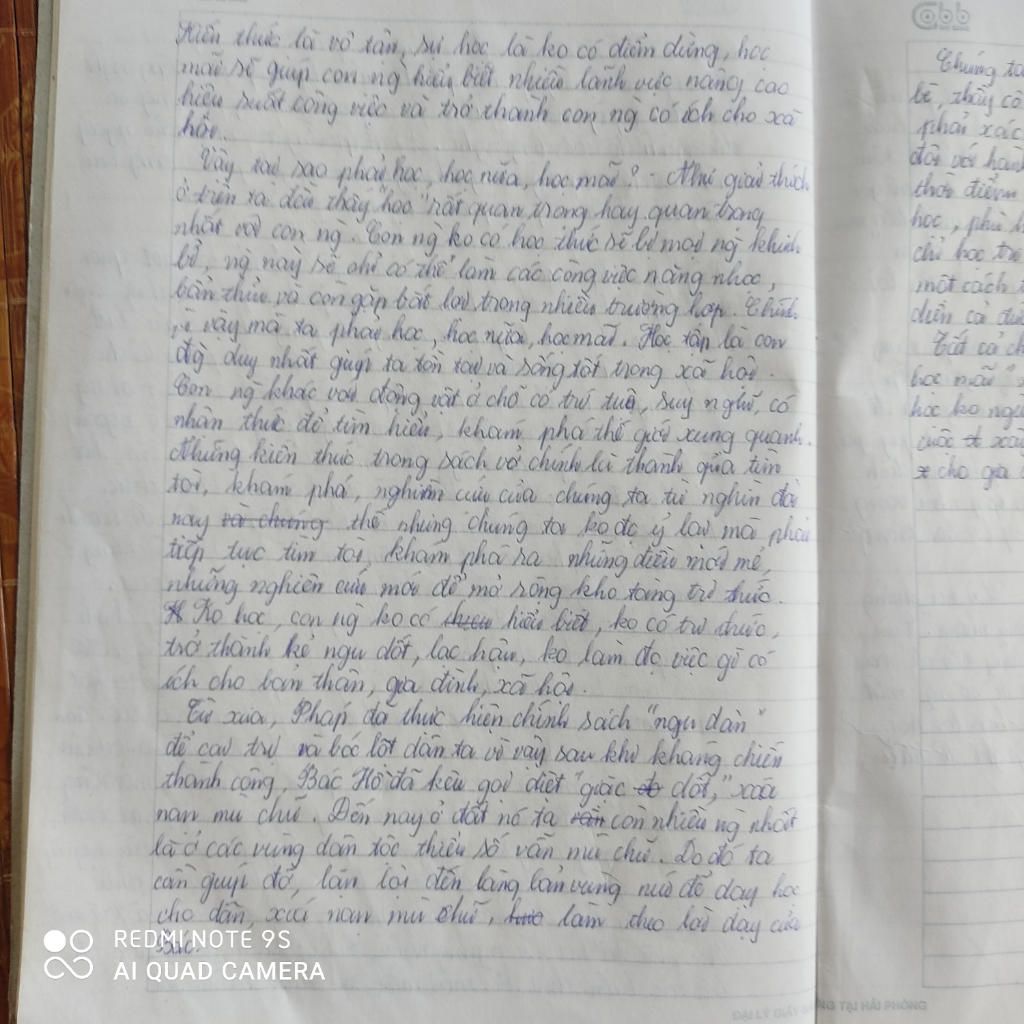 Kiến thức là vô tận, sự học là ko có điểm dừng, học
mãi sẽ giúp con ng hiểu biết nhiều lãnh vực nâng cao
hiệu suất công việc và trở thành con ng có ích cho xã
hội.
Vậy tại sao phải học, học nữa, học mãi? - Như giải thích
ở trên ta đều thấy "học" rất quan trọng hay quan trọng
nhất với con ng. Con ng ko có học thức sẽ bị mọi ng khinh
bỉ, ng này sẽ chỉ có thể làm các công việc nặng nhọc,
bần thỉu và còn gặp bất lợi trong nhiều trường hợp. Chính
vì vậy mà ta phải học, học nữa, học mãi. Học tập là con
đg duy nhất giúp ta tồn tại và sống tốt trong xã hội.
Con ng khác với động vật ở chỗ có trí tuệ, suy nghĩ, có
nhận thức để tìm hiểu, khám phá thế giới xung quanh.
Những kiến thức trong sách vở chính là thành quả tìm
tòi, khám phá, nghiên cứu của chúng ta từ nghìn đời
nay và chúng thế nhưng chúng ta ko đc ỷ lại mà phải
tiếp tục tìm tòi, khám phá ra những điều mới mẻ,
những nghiên cứu mới để mở rộng kho tàng tri thức.
Ko học, con ng ko có hiểu biết, ko có tri thức,
trở thành kẻ ngu dốt, lạc hậu, ko làm đc việc gì có
ích cho bản thân, gia đình, xã hội.
Từ xưa, Pháp đã thực hiện chính sách "ngu dân"
để cai trị và bóc lột dân ta vì vậy sau khi kháng chiến
thành công, Bác Hồ đã kêu gọi diệt "giặc dốt," xoá
nạn mù chữ. Đến nay ở đất nc ta vẫn còn nhiều ng nhất
là ở các vùng dân tộc thiểu số vẫn mù chữ. Do đó ta
cần giúp đỡ, lặn lội đến làng bản vùng núi để dạy học
cho dân, xoá nạn mù chữ, làm theo lời dạy của
Bác.
Cobb
Chúng ta
bè, thầy cô
phải xác
đối với hành
thời điểm
học, phù h
chỉ học tr
một cách
diễn cả đư
Tất cả ch
học mãi"
học ko ngừ
cuộc xây
cho gia
REDMI NOTE 9S
AI QUAD CAMERA
ĐẠI LÝ GIẤY TẠI HẢI PHÒNG